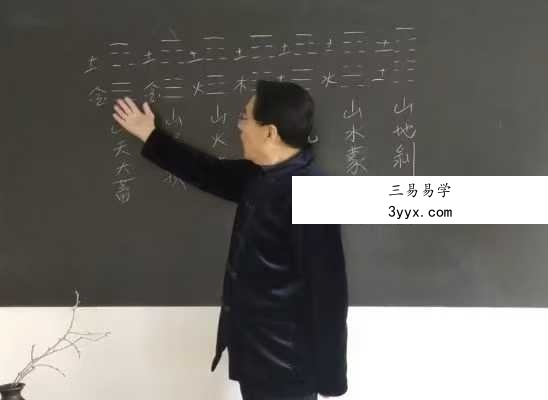 土 土 土 土 土 土 土
金 金 火 木 土 水 土
山天大蓄
山
山火
山水蒙
山地剥
三易易学
3yyx.com